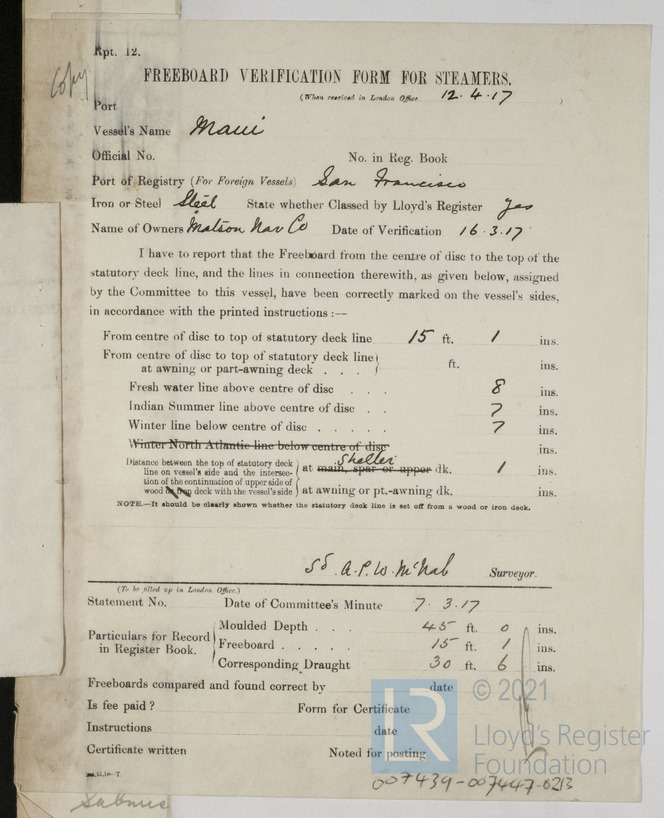 Rpt. 12.
Copy
FREEBOARD VERIFICATION FORM FOR STEAMERS.
(When received in London Office 12.4.17 )
Port
Vessel's Name Maui
Official No. No. in Reg. Book
Port of Registry (For Foreign Vessels) San Francisco
Iron or Steel Steel State whether Classed by Lloyd's Register Yes
Name of Owners Matson Nav Co Date of Verification 16.3.17
I have to report that the Freeboard from the centre of disc to the top of the
statutory deck line, and the lines in connection therewith, as given below, assigned
by the Committee to this vessel, have been correctly marked on the vessel's sides,
in accordance with the printed instructions :—
From centre of disc to top of statutory deck line 15 ft. 1 ins.
From centre of disc to top of statutory deck line
at awning or part-awning deck . . . ft. ins.
Fresh water line above centre of disc . . . 8 ins.
Indian Summer line above centre of disc . . 7 ins.
Winter line below centre of disc . . . . . 7 ins.
Winter North Atlantic line below centre of disc ins.
Distance between the top of statutory deck
line on vessel's side and the intersec-
tion of the continuation of upper side of
wood or iron deck with the vessel's side
Shelter
at main, spar or upper dk. 1 ins.
at awning or pt.-awning dk. ins.
NOTE.—It should be clearly shown whether the statutory deck line is set off from a wood or iron deck.
Sd. A.P.W. McNab Surveyor.
(To be filled up in London Office.)
Statement No. Date of Committee's Minute 7.3.17
Particulars for Record
in Register Book.
Moulded Depth . . . 45 ft. 0 ins.
Freeboard . . . . . 15 ft. 1 ins.
Corresponding Draught 30 ft. 6 ins.
Freeboards compared and found correct by date
Is fee paid ? Form for Certificate
Instructions date
Certificate written Noted for posting
LR
© 2021
Lloyd's Register
Foundation
007439-007447-0213